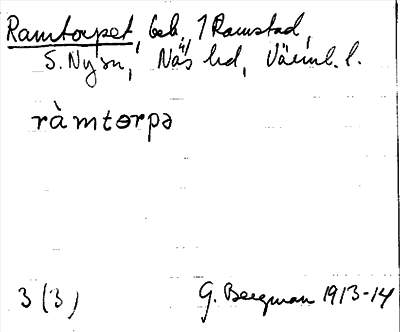 Ramtorpet, beb. 1 Ramstad,
S. Ny sn, Näs hd, Värml. l.
ràmtɵrpə
3 (3)
G. Bergman 1913-14